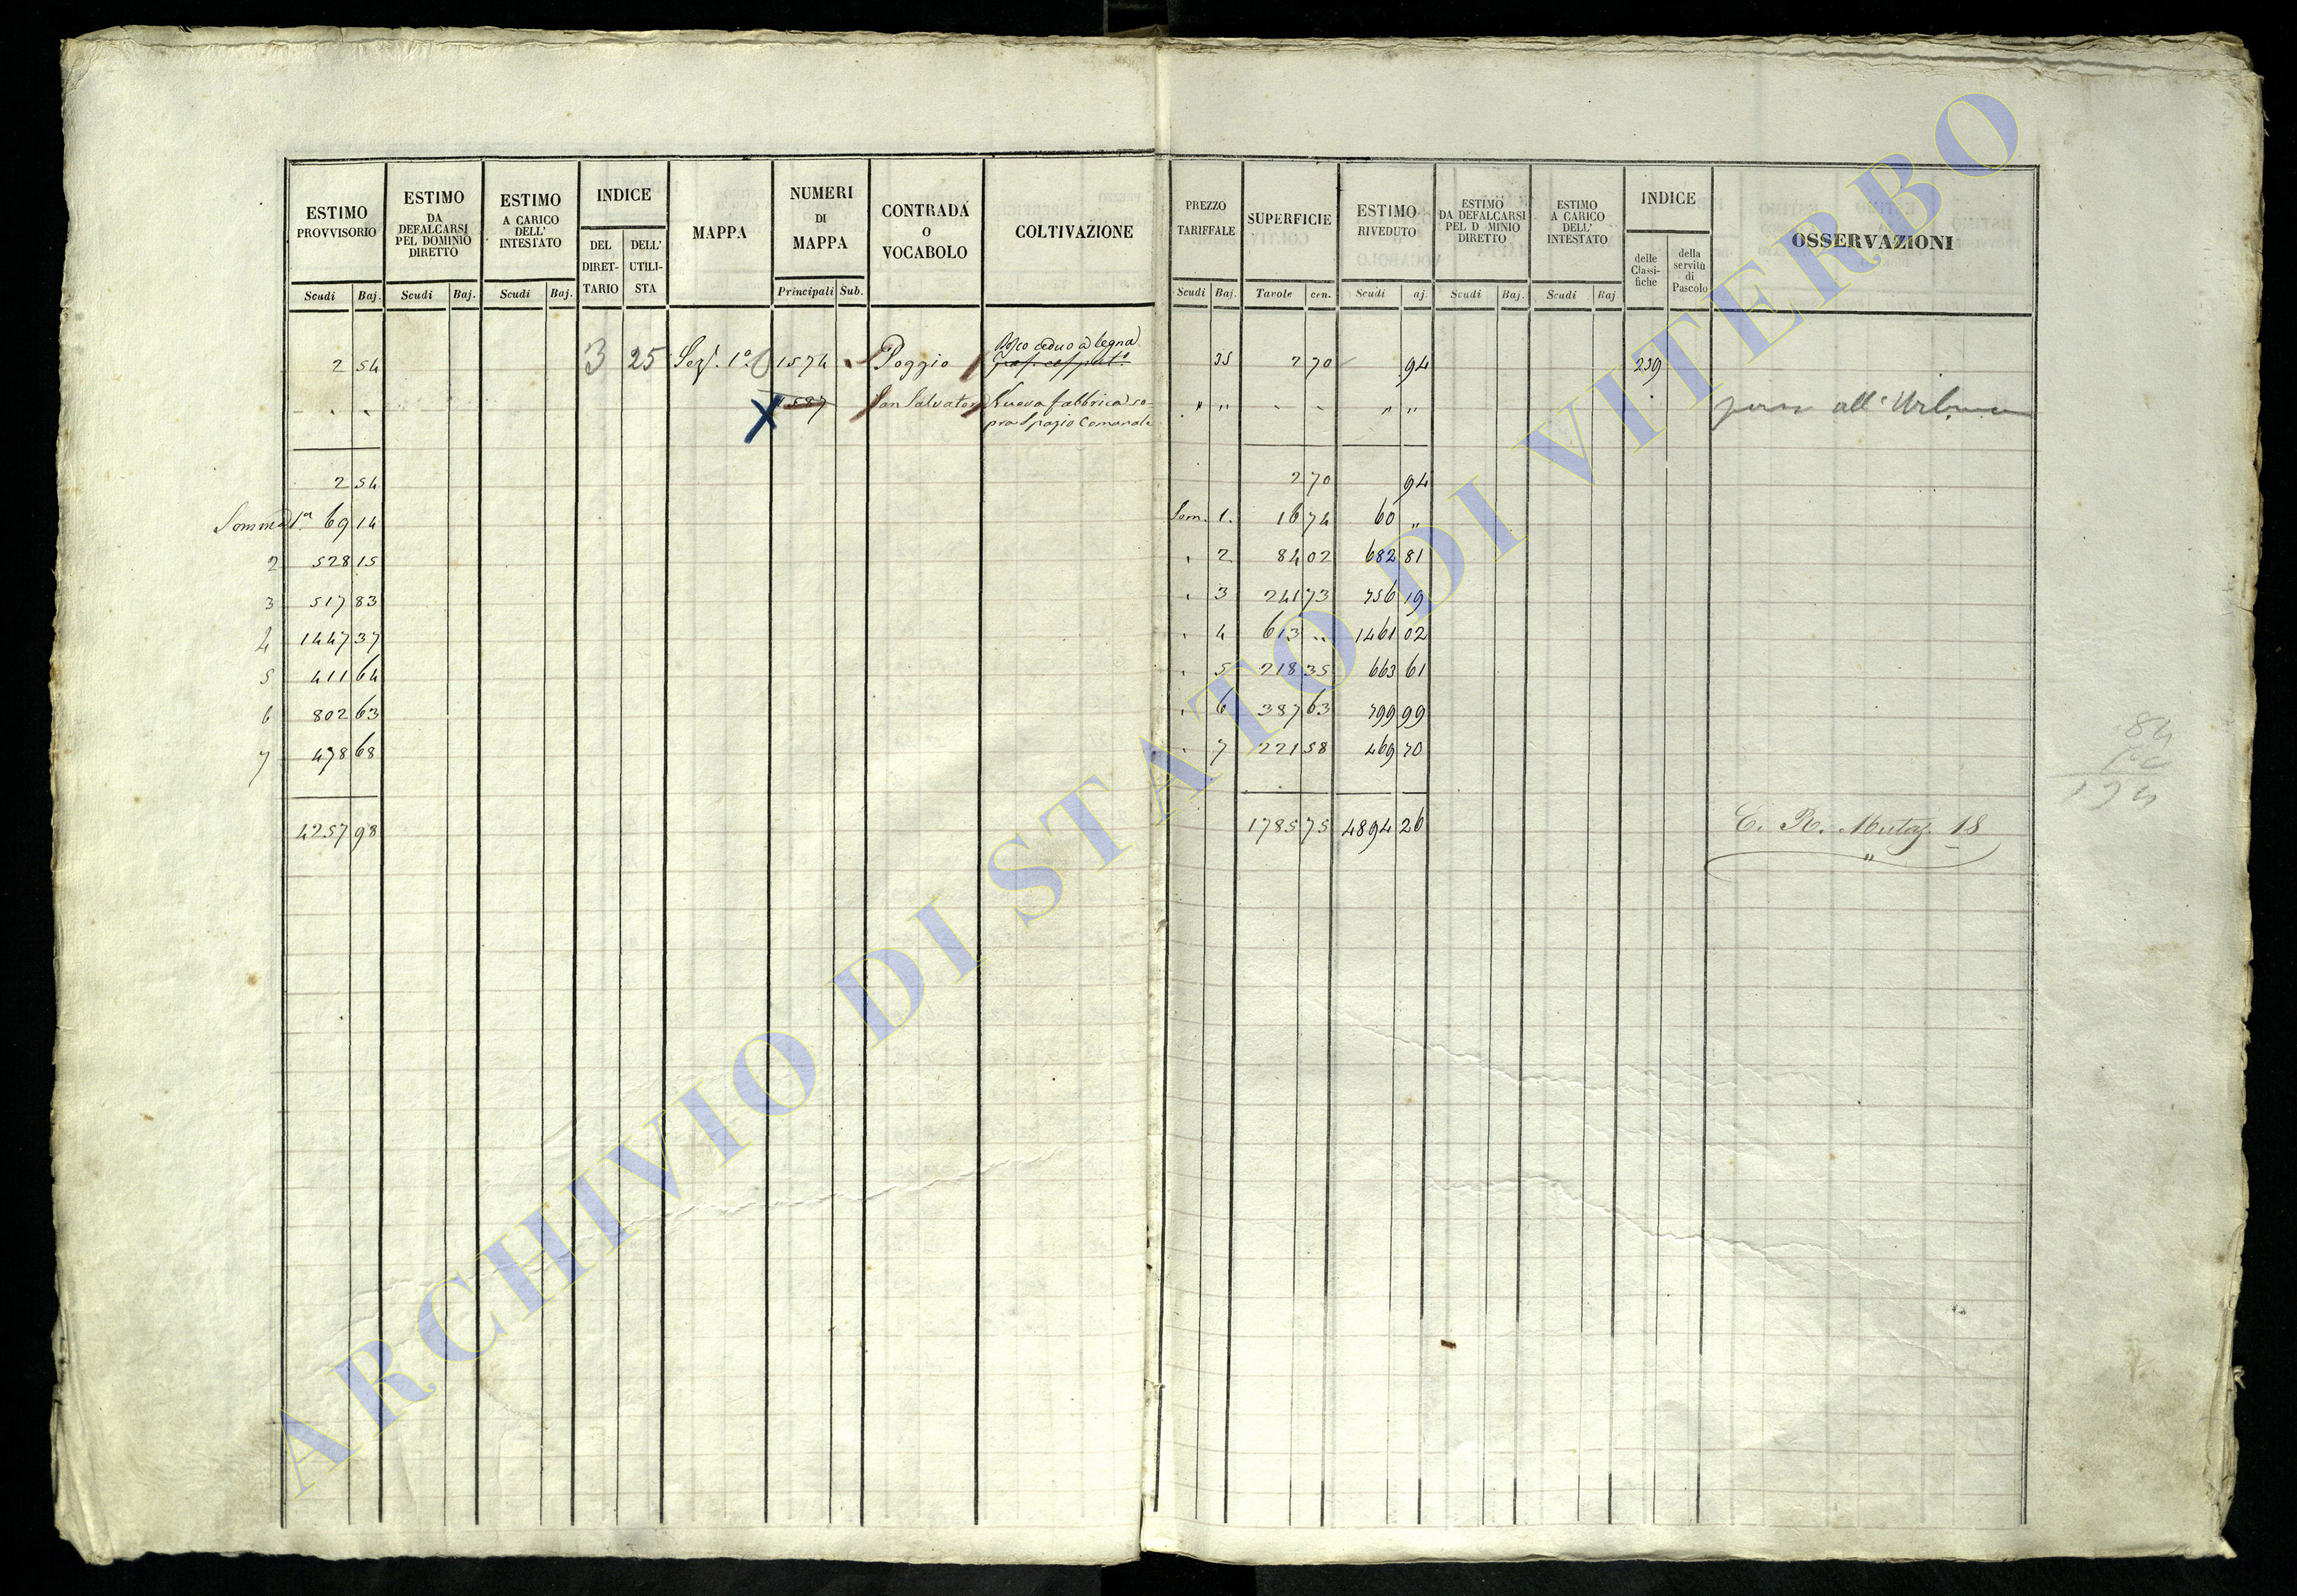 ESTIMO PROVVISORIO
Scudi Baj.
ESTIMO DA DEFALCARSI PEL DOMINIO DIRETTO
Scudi Baj.
ESTIMO A CARICO DELL' INTESTATO
Scudi Baj.
INDICE
DEL DIRET-TARIO
DELL' UTILI-STA
MAPPA
NUMERI DI MAPPA
Principali Sub.
CONTRADA O VOCABOLO
COLTIVAZIONE
PREZZO TARIFFALE
Scudi Baj.
SUPERFICIE
Tavole cen.
ESTIMO RIVEDUTO
Scudi aj.
ESTIMO DA DEFALCARSI PEL D MINIO DIRETTO
Scudi Baj.
ESTIMO A CARICO DELL' INTESTATO
Scudi Baj
INDICE
delle Classi-fiche
della servitù di Pascolo
OSSERVAZIONI
Bosco ceduo a legna
2 54 3 25 Sez. 1a 1574 Poggio 35 2 70 94 239
1587 San Salvatore Nuova fabbrica so- " " " "
pra Spazio Comunale all'Urbano
2 54 2 70 94
Somma 1a 69 14 Som. 1. 16 74 60 "
2 528 15 2 84 02 682 81
3 517 83 3 241 73 756 19
4 1447 37 4 613 " 1461 02
5 411 64 5 218 35 663 61
6 802 63 6 387 63 799 99
7 478 68 7 221 58 469 70
4257 98 1785 75 4894 26 C. R. Mutaz. 18
ARCHIVIO DI STATO DI VITERBO